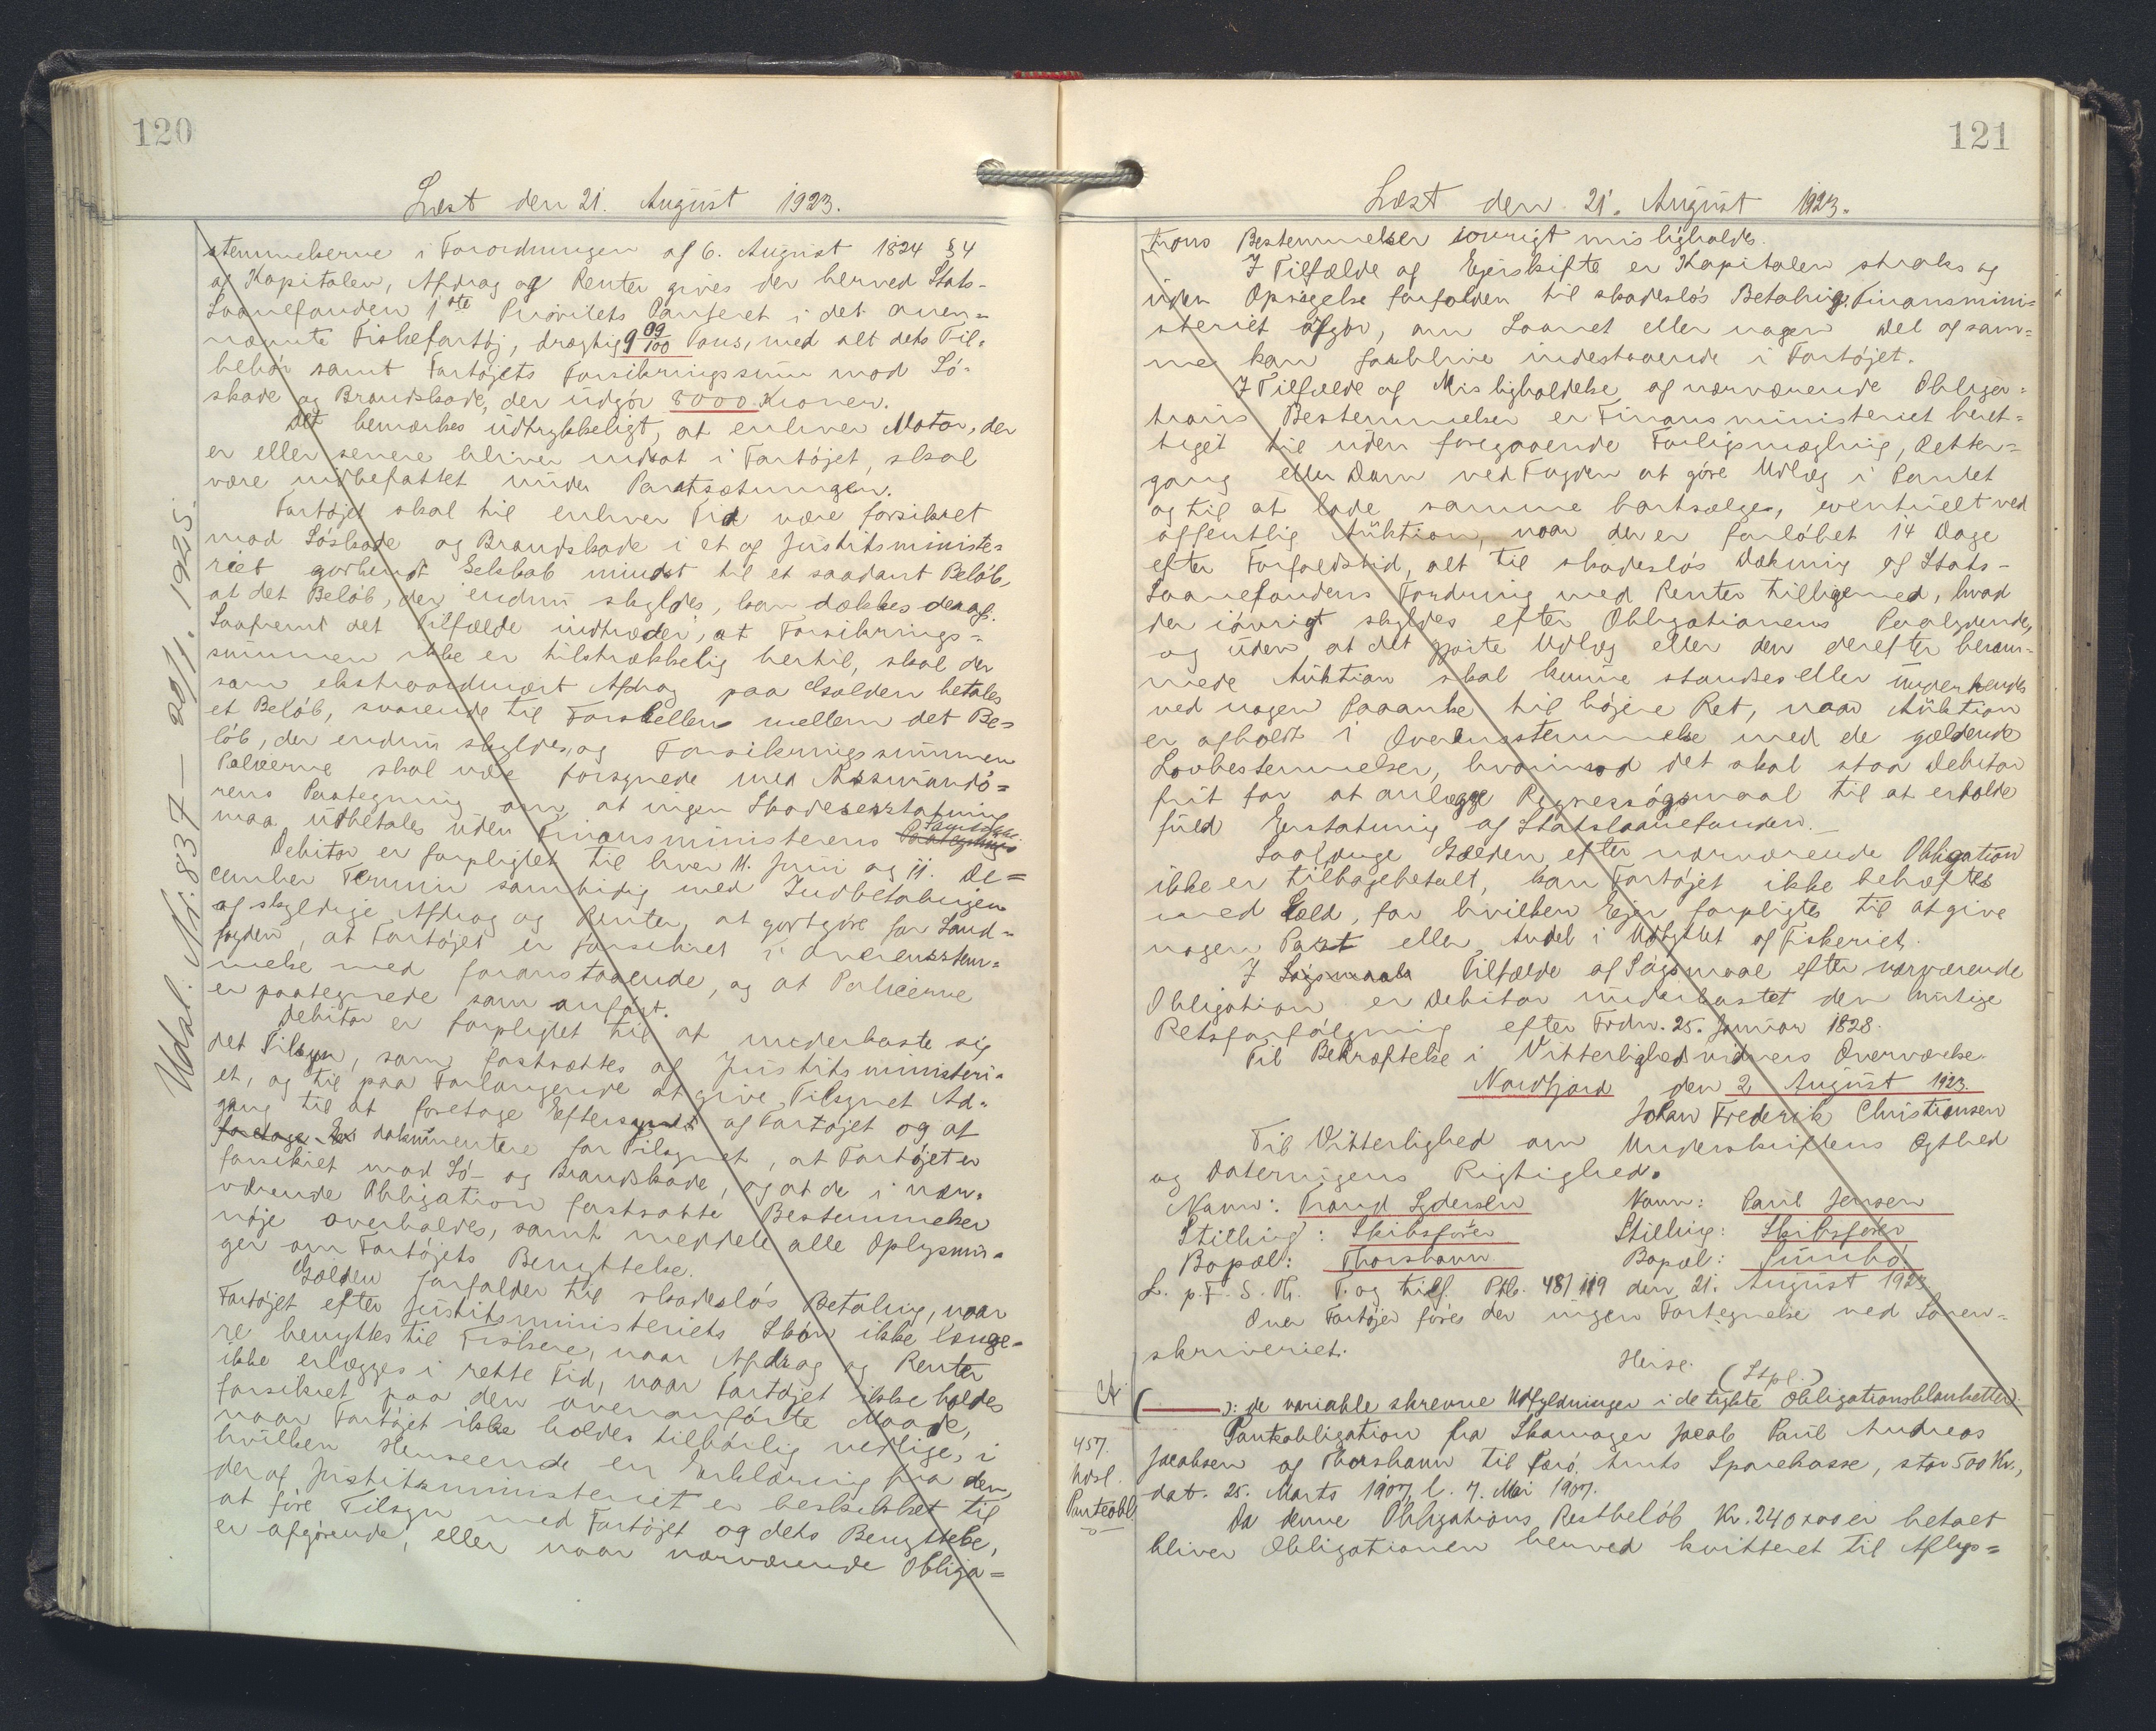 120
Læst den 21. August 1923.
Udsl. Nr: 837 — 20/1. 1925.
stemmelserne i Forordningen af 6. August 1824 §4
og Kapitalen, Afdrag og Renter gives der herved Stats-
Laanefonden 1ste Prioritets Panteret i det oven=
nævnte Fiskefartøj, drægtig 9 09/100 Tons, med alt dets Til=
behør samt Fartøjets Forsikringssum mod Sø=
skade og Brandskade, der udgør 8000 Kroner.
Det bemærkes udtrykkeligt, at enhver Motor, der
er eller senere bliver indsat i Fartøjet, skal
være indbefattet under Pantsætningen.
Fartøjet skal til enhver Tid være forsikret
mod Søskade og Brandskade i et af Justitsministe=
riet godkendt Selskab mindst til et saadant Beløb,
at det Beløb, der endnu skyldes, kan dækkes deraf.
Saafremt det Tilfælde indtræder, at Forsikrings=
summen ikke er tilstrækkelig hertil, skal der
som ekstraordinært Afdrag paa Gælden betales
et Beløb, svarende til Forskellen mellem det Be=
løb, der endnu skyldes, og Forsikringssummen
Policerne skal være forsynede med Assurandø=
rens Paategning om, at ingen Skadeserstatning
maa udbetales uden Finansministerens Samtykke Paategning
Debitor er forpligtet til hver 11. Juni og 11. De=
cember Termin samtidig med Indbetalingen
af skyldige Afdrag og Renter, at godtgøre for Land=
fogden, at Fartøjet er forsikret i Overensstem=
melse med foranstaaende, og at Policerne
er paategnede som anført.
Debitor er forpligtet til at underkaste sig
det Tilsyn, som fastsættes af Justitsministeri=
et, og til paa Forlangende at give Tilsynet Ad=
gang til at foretage Eftersynet af Fartøjet og at
foretage Ef dokumentere for Tilsynet, at Fartøjet er
forsikret mod Sø- og Brandskade, og at de i nær=
værende Obligation fastsatte Bestemmelser
nøje overholdes, samt meddele alle Oplysnin=
ger om Fartøjets Benyttelse.
Gælden forfalder til skadesløs Betaling, naar
Fartøjet efter Justitsministeriets Skøn ikke længe=
re benyttes til Fiskere, naar Afdrag og Renter
ikke erlægges i rette Tid, naar Fartøjet ikke holdes
forsikret paa den ovenanførte Maade,
naar Fartøjet ikke holdes tilbørlig vedlige, i
hvilken Henseende en Erklæring fra den
der af Justitsministeriet er beskikket til
at føre Tilsyn med Fartøjet og dets Benyttelse,
er afgørende, eller naar nærværende Obliga=
121
Læst den 21. August 1923.
tions Bestemmelser iøvrigt misligholdes.
I Tilfælde af Ejerskifte er Kapitalen straks og
uden Opsigelse forfalden til skadesløs Betaling. Finansmini=
steriet afgør, om Laanet eller nogen Del af sam=
me kan forblive indestaaende i Fartøjet.
I Tilfælde af Misligholdelse af nærværende Obliga=
tions Bestemmelser er Finansministeriet beret=
tiget til uden foregaaende Forligsmægling, Retter=
gang eller Dom ved Fogden at gøre Udlæg i Pantet
og til at lade samme bortsælges, eventuelt ved
offentlig Auktion, naar der er forløbet 14 Dage
efter Forfaldstid, alt til skadesløs Dækning af Stats-
Laanefondens Fordring med Renter tilligemed, hvad
der iøvrigt skyldes efter Obligationens Paalydende,
og uden at det gjorte Udlæg eller den derefter beram=
mede Auktion skal kunne standses eller underkendes
ved nogen Paaanke til højere Ret, naar Auktion
er afholdt i Overensstemmelse med de gældende
Lovbestemmelser, hvorimod det skal staa Debitor
frit for at anlægge Regressøgsmaal til at erholde
fuld Erstatning af Statslaanefonden.
Saalænge Gælden efter nærværende Obligation
ikke er tilbagebetalt, kan Fartøjet ikke behæftes
med Gæld, for hvilken Ejer forpligtes til at give
nogen Part eller Andel i Udbyttet af Fiskeriet.
I Søgsmaals Tilfælde af Søgsmaal efter nærværende
Obligation er Debitor underkastet den hurtige
Retsforfølgning efter Frdn. 25. Januar 1828.
Til Bekræftelse i Vitterlighedsvidners Overværelse.
Nordfjord den 2 August 1923.
Johan Frederik Christiansen
Til Vitterlighed om Underskriftens Ægthed
og Dateringens Rigtighed.
Navn: Trond Lydersen Navn: Paul Jensen
Stilling: Skibsfører Stilling: Skibsfører
Bopæl: Thorshavn Bopæl: Sumbø
L. p. F. S. Th. T. og tilf. Ptb. 48/119 den 21. August 1923
Over Fartøjer føres der ingen Fortegnelse ved Soren=
skriveriet.
Heise. (Stpl.)
( ): de variable skrevne Udfyldninger i de trykte Obligationsblanketter.
A
457.
Udsl.
Panteobl.
Panteobligation fra Skomager Jacob Paul Andreas
Jacobsen af Thorshavn til Færø Amts Sparekasse, stor 500 Kr.,
dat. 25. Marts 1907, l. 7. Mai 1907.
Da denne Obligations Restbeløb Kr. 240 x 00 er betalt
bliver Obligationen herved kvitteret til Aflys=